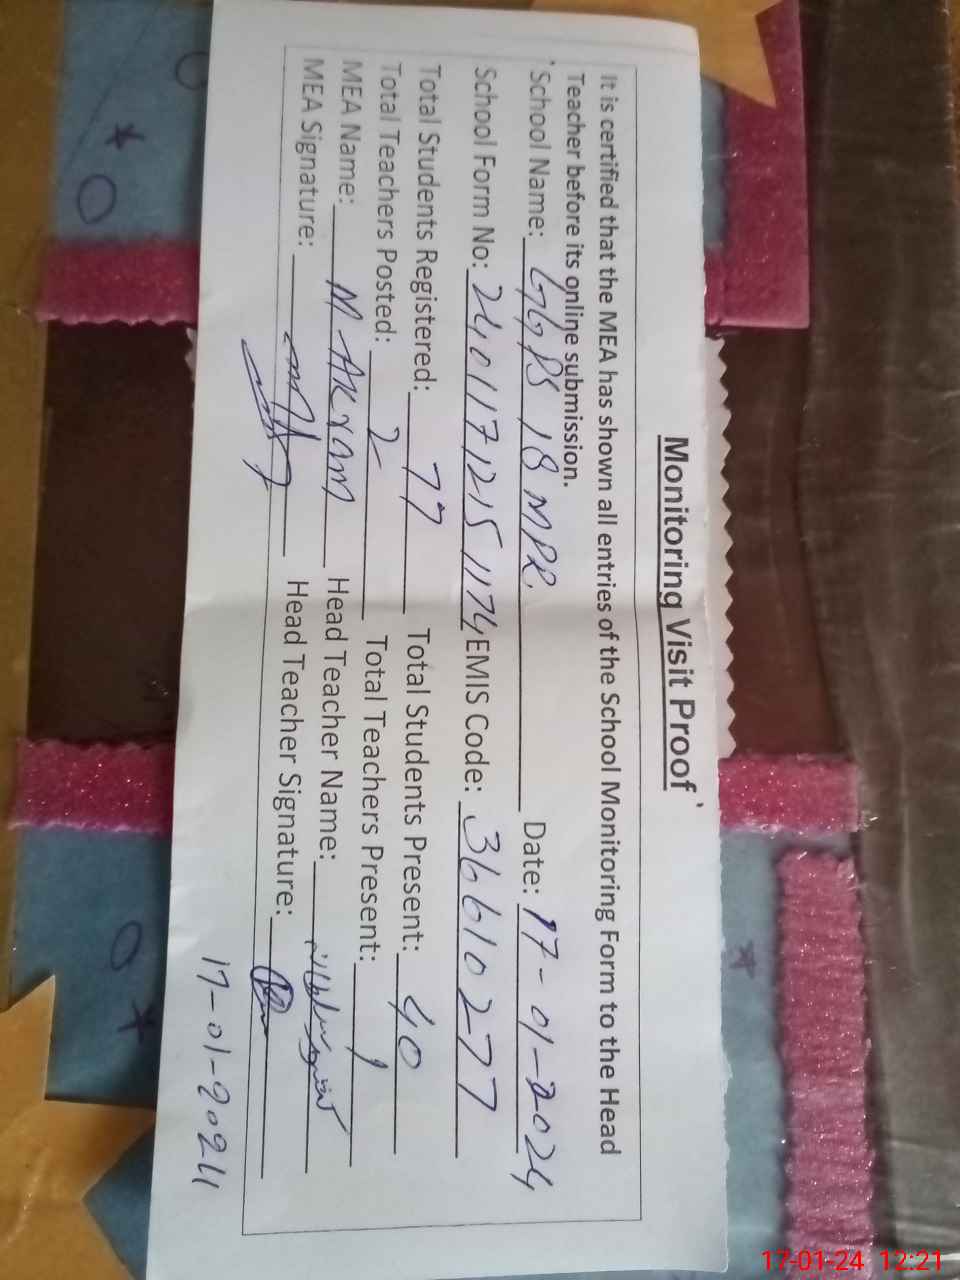 Monitoring Visit Proof
It is certified that the MEA has shown all entries of the School Monitoring Form to the Head
Teacher before its online submission.
School Name: GGPS 18 MPR. Date: 17-01-2024
School Form No: 24011712151174 EMIS Code: 36610277
Total Students Registered: 77 Total Students Present: 40
Total Teachers Posted: 2 Total Teachers Present: 1
MEA Name: M AKram Head Teacher Name:
MEA Signature: Head Teacher Signature:
17-01-2024
17-01-24 12:21